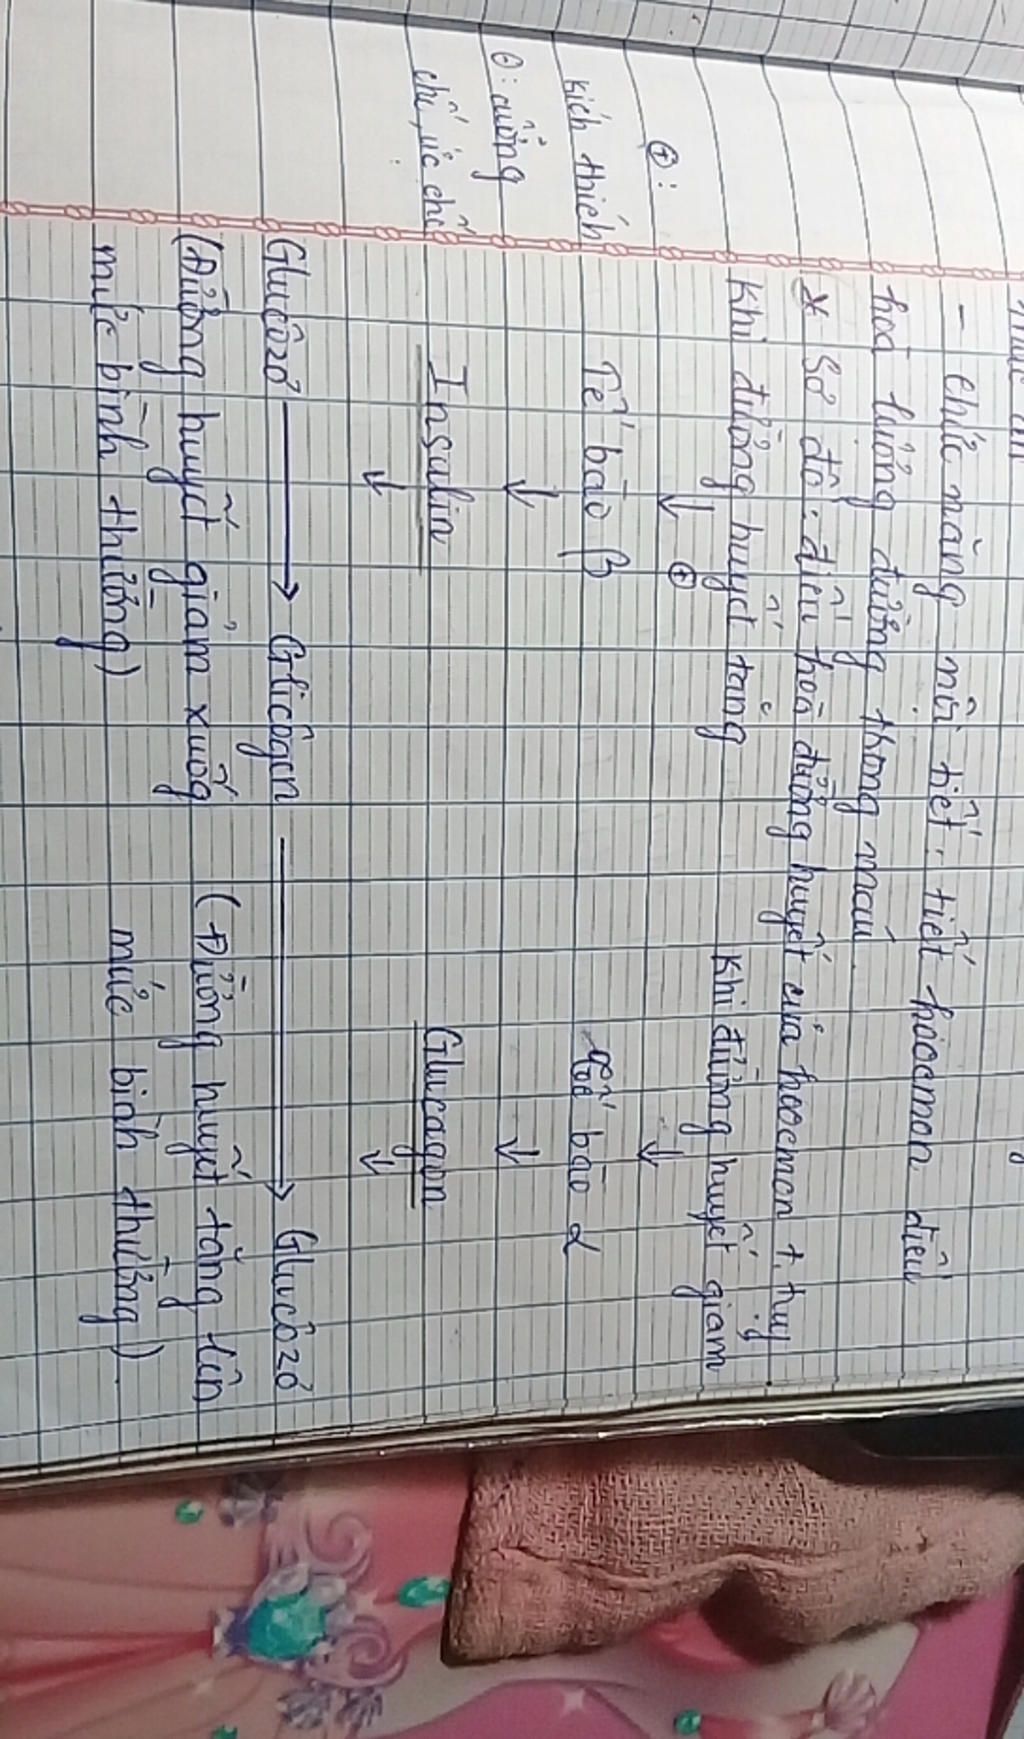 - chức năng nội tiết: tiết hoocmon điều
hoà lượng đường trong máu.
* Sơ đồ: điều hoà đường huyết của hoocmon t. tuỵ
Khi đường huyết tăng Khi đường huyết giảm
⊕: ↓ ⊕ ↓
kích thích Tế bào β Tế bào α
⊖: cưỡng ↓ ↓
chế, ức chế Insulin Glucagon
↓ ↓
Glucôzơ → Glicôgen → Glucôzơ
(Đường huyết giảm xuống (Đường huyết tăng lên
mức bình thường) mức bình thường)